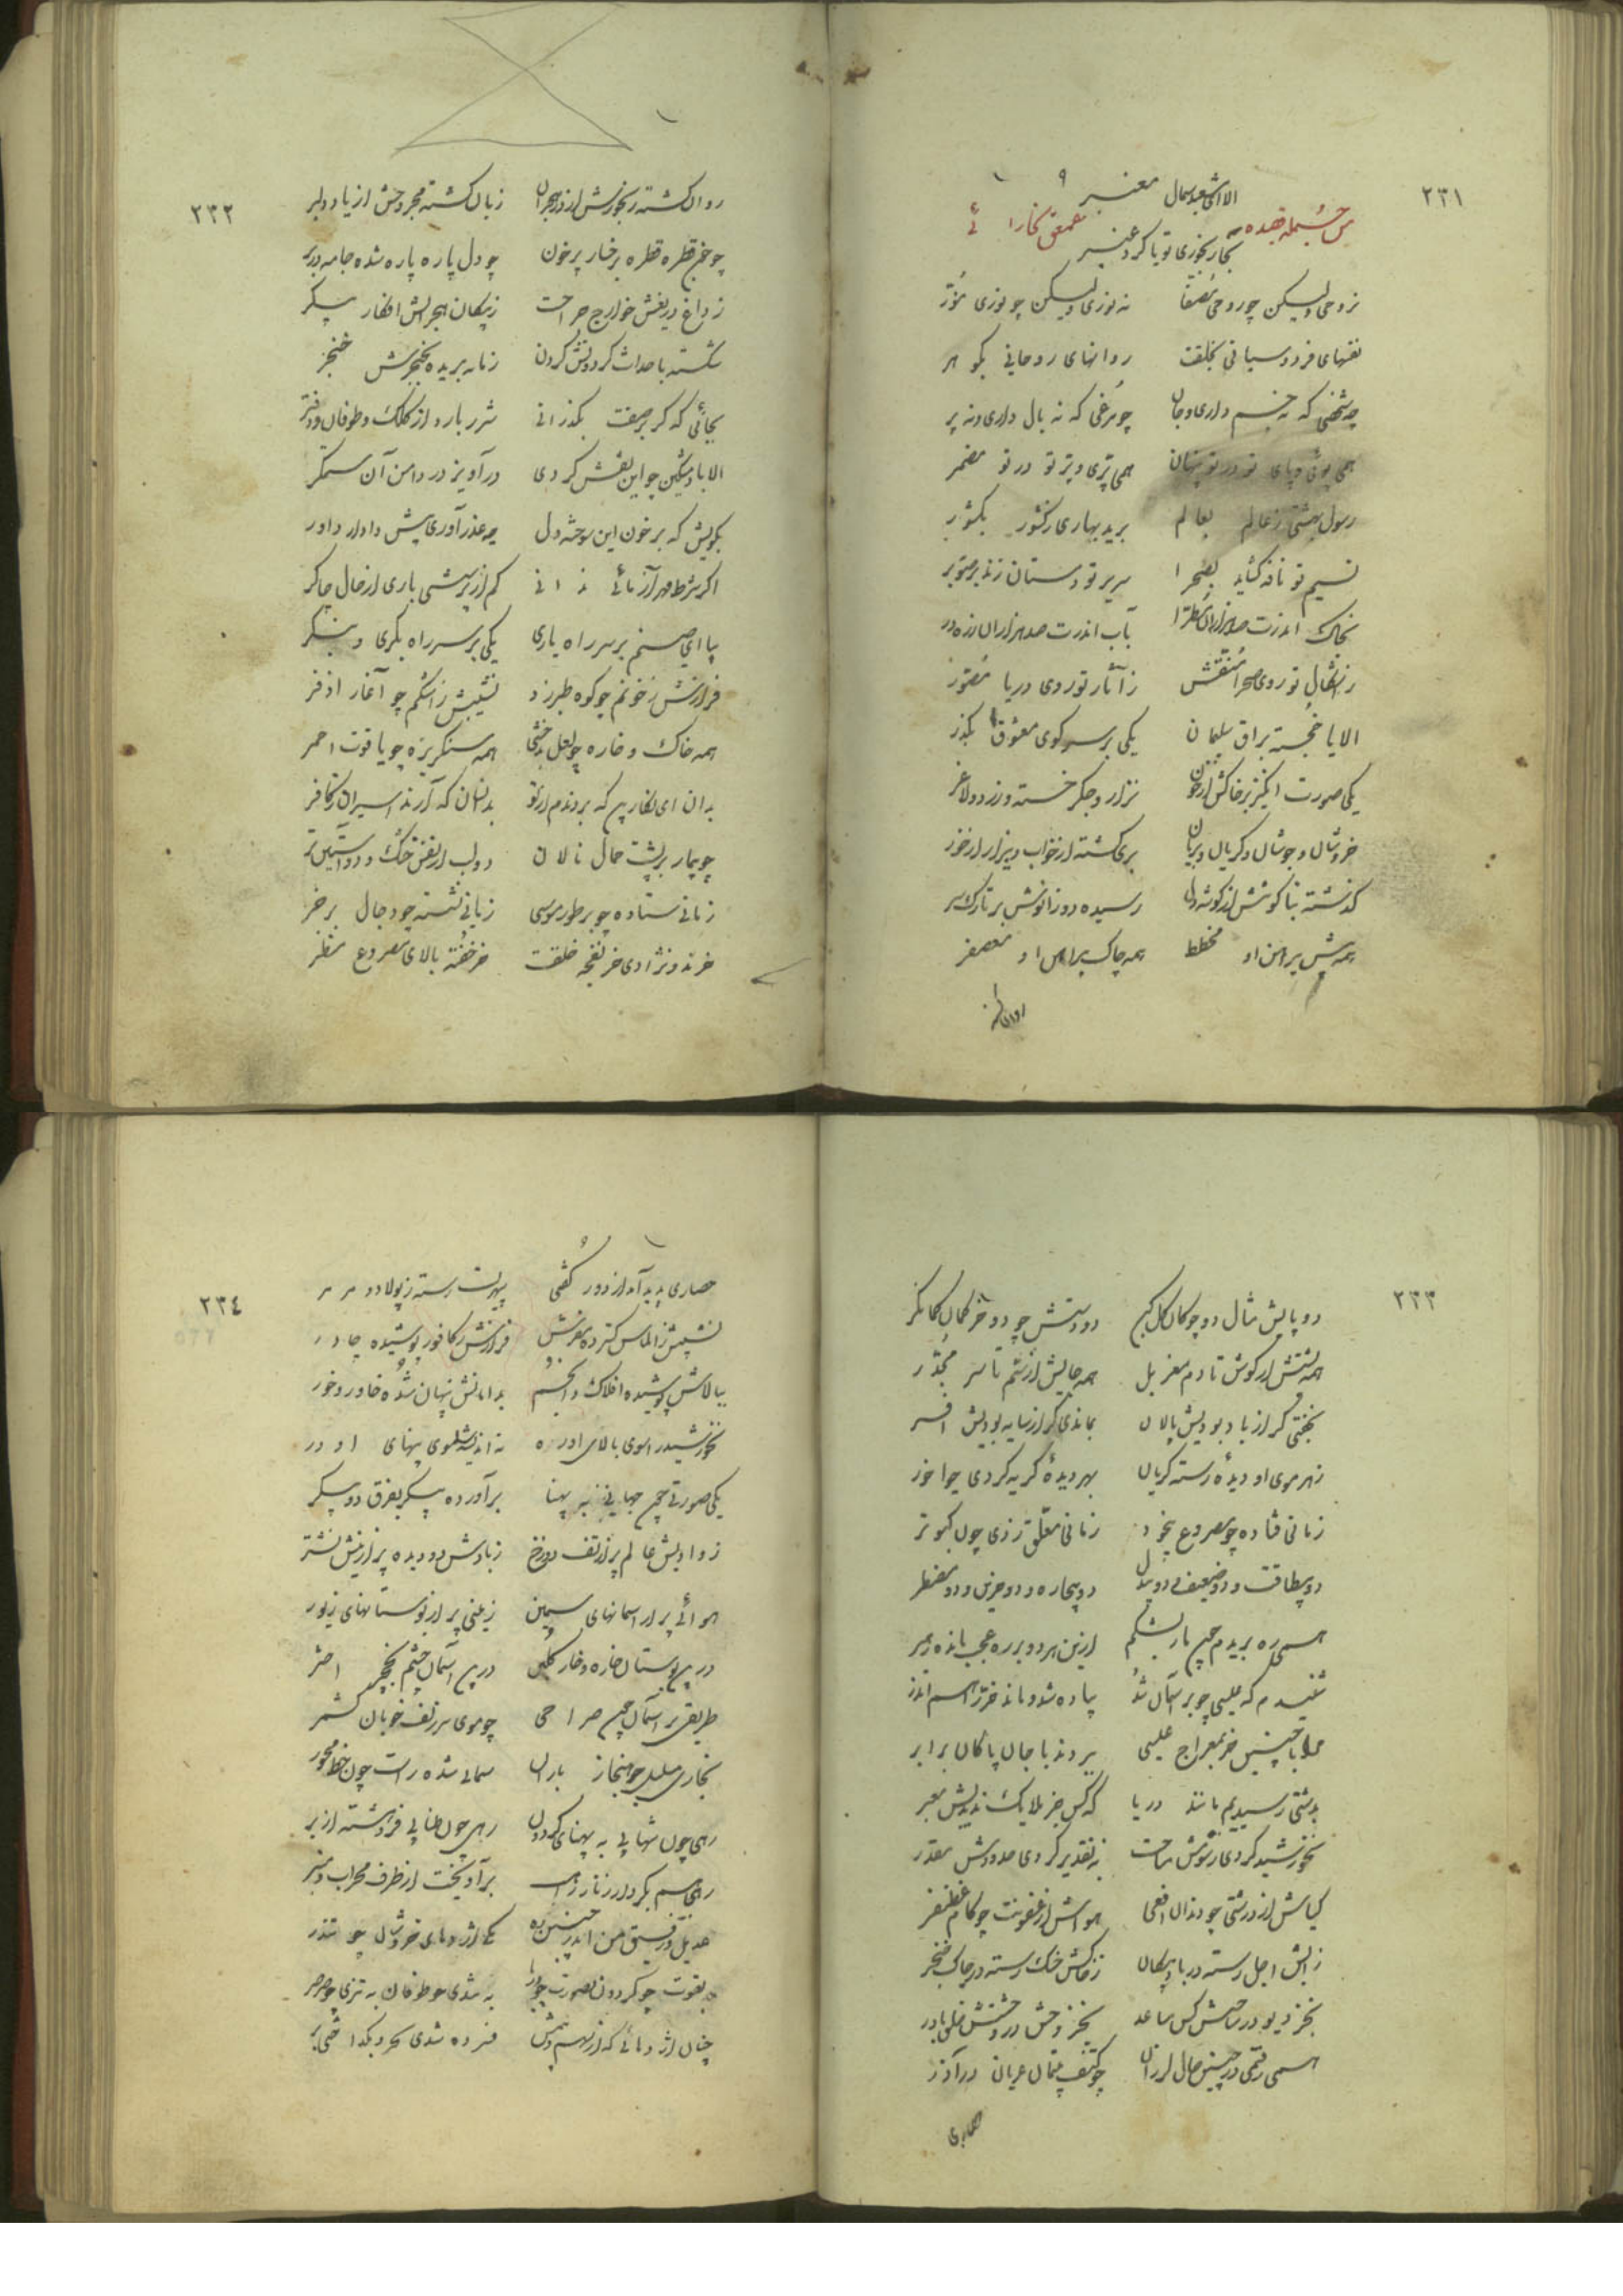 ٢٣١
الا ای مشعبد شمال معنبر
من جمله قصیده عمعق بخارائی
بخار بخوری تو یا گرد عنبر
نه روحی ولیکن چو روحی مصفا نه نوری ولیکن چو نوری منور
نفسهای فردوسیانی بخلقت روانهای روحانیی بگوهر
چه شخصی که نه جسم داری و جان چو مرغی که نه بال داری و نه پر
همی پوئی و پای تو در تو پنهان همی پری و پر تو در تو مضمر
رسول بهشتی ز عالم بعالم برید بهاری ز کشور بکشور
نسیم تو نافه گشاید بصحرا سریر تو دستان زند بر صنوبر
بخاک اندرت صد هزاران مطرا بآب اندرت صد هزاران زره در
ز اشکال تو روی صحرا منقش ز آثار تو روی دریا مصور
الا یا خجسته براق سلیمان یکی بر سر کوی معشوق بگذر
یکی صورت انگیز بر خاکش از خون نزار و جگر خسته و زرد و لاغر
خروشان و جوشان و گریان و بریان بری گشته از خواب و بیزار از خور
گذشته بناگوشش از گوشه دل رسیده دو زانوش بر تارک سر
همه پیش پیراهن او مخطط همه چاک پیراهن او معصفر
روان گشته
٢٣٢
روان گشته رنجورش از درد هجران زبان گشته مجروحش از یاد دلبر
چو خون قطره قطره برخسار پر خون چو دل پاره پاره شده جامه در بر
ز داغ دریغش خوارج جراحت ز پیکان هجرانش افکار پیکر
شکسته باحداث گردونش گردن زمانه بریده بخنجرش حنجر
بجائی که گر بر صفت بگذرانی شرر بارد از کلک و طوفان ز دفتر
الا باد مشکین چو این نقش کردی درآویز در دامن آن ستمگر
بگویش که بر خون این سوخته دل چه عذر آوری پیش دادار داور
اگر شرط مهرآزمائی ندانی کم از پرسشی باری از حال چاکر
بیا ای صنم بر سر راه یاری یکی بر سر راه بگری و بنگر
فرازش ز خونم چو کوه طبرزد نشیبش ز اشکم چو آغار اذفر
همه خاک و خاره چو لعل بدخشی همه سنگریزه چو یاقوت احمر
بدان ای نگارین که بردندم از تو بدنسان که آرند اسیران ز کافر
چو بیمار بر پشت حمال نالان دو لب از تف خشک و دو آستین تر
زمانی ستاده چو بر طور موسی زمانی نشسته چو دجال بر خر
خر ند نژادی خر نفجه خلقت خر خفته بالای مصروع منظر
٢٣٣
دو پایش مثال دو چوگان گل کین دو دستش چو دو خر کمان کمانگر
همه پشتش از گوش تا دم مغربل همه جایش از شم تا سر مجدر
بخفتی گر از باد بودیش پالان بماندی گر از سایه بودیش افسر
ز هر موی او دیده رسته گریان بهر دیده گریه کردی چو اخور
زمانی فتاده چو مصروع بیخود زمانی معلق زدی چون کبوتر
دو بیطاقت و دو ضعیف و دو بیدل دو بیچاره و دو حزین و دو مضطر
همی ره بریدم چنین باز بشکم ازین هر دو بر ره عجب مانده رهبر
شنیدم که عیسی چو بر آسمان شد پیاده شد و ماند خر را هم ایدر
مرا با چنین خر بمعراج عیسی ببردند با جان پاکان برابر
بدشتی رسیدیم مانند دریا که کس جز ملایک ندیدیش معبر
نه خورشید کردی رسومش مساحت نه تقدیر کردی حدودش مقدر
گیاش از درشتی چو دندان افعی هواش از عفونت چو کام غضنفر
ز آبش اجل رسته در باد پیکان ز خاکش خسک رسته در چاک خنجر
بجز دیو در ساحتش کس مساعد بجز وحش در وحشتش خلق یاور
همی رفتمی در چنین حال لرزان چو کتف یتیمان عریان در آذر
حصاری
٢٣٤
حصاری پدید آمد از دور گفتی سپهریست رسته ز پولاد و مرمر
نشیبش ز الماس گسترده مفرش فرازش ز کافور پوشیده چادر
ببالاش پوشیده افلاک و انجم بدامانش پنهان شده خاور و خور
نه خورشید را سوی بالای او ره نه اندیشه را سوی پهنای او در
یکی صورتی چون جهانی به پهنا برآورده پیکر بفرق دو پیکر
ز وادیش عالم پر از تف دوزخ ز بادش دو دیده پر از نیش نشتر
هوائی پر از آسمانهای سیمین زمینی پر از بوستانهای زیور
در این بوستان خاره و خار گلبن در این آسمان چشم نخجیر اختر
طریقی بر آسمان چون صراطی چو موی سر زلف خوبان کشمر
رهی چون شهابی به پهنای گردون رهی چون طنابی فروهشته از بر
رهی همچو کردار زنار راهب برآویخت از طرف محراب و منبر
عدیل و رفیق من اندر چنین ره یکی اژدهای خروشان چو تندر
بقوت چو گردون بصورت چو دریا به تندی چو طوفان به تیزی چو صرصر
چنان اژدهائی که از سهم و بیمش فسرده شدی بحر و بگداختی بر